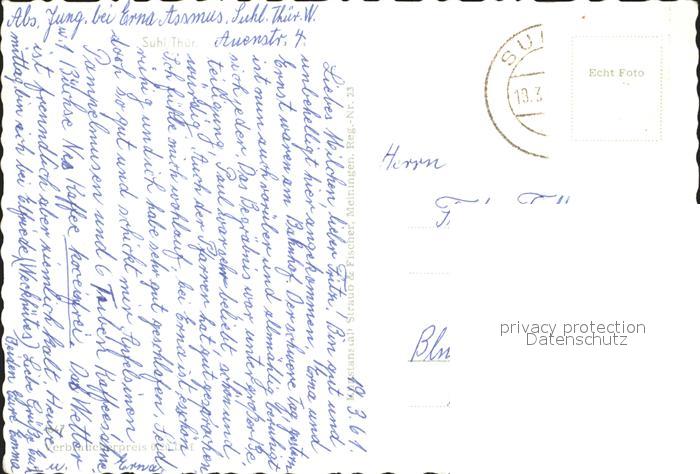 Abs. Jung. bei Erna Assmus, Suhl. Thür. W.
Auenstr. 4.
Suhl Thür.
19.3.61.
Liebes Milchen, lieber Fritz! Bin gut und
unbehelligt hier angekommen. Erna und
Ernst waren am Bahnhof. Der schwere Tag gestern
ist nun auch vorüber und allmählig beruhigt
sich jeder. Das Begräbnis war unter großer Be
teiligung, Paul war sehr beliebt, schön und
würdig. Auch der Pfarrer hat gut gesprochen
Ich fühle mich wohlauf, bei Erna ist es schön
ruhig und ich habe sehr gut geschlafen. Seid
doch so gut und schickt mir Apfelsinen
Pampelmusen und 6 Tuben Kaffeesahne
u. 1 Büchse Nes Kaffee koffeinfrei. Das Wetter
ist freundlich aber ziemlich kalt. Heute
mittag bin ich bei Elfriede Liebe Grüße Eure
u. Erna
Kunstanstalt Straub & Fischer, Meiningen, Reg.-Nr. 23
SU
19.3
Echt Foto
Herrn
Bln
privacy protection
Datenschutz